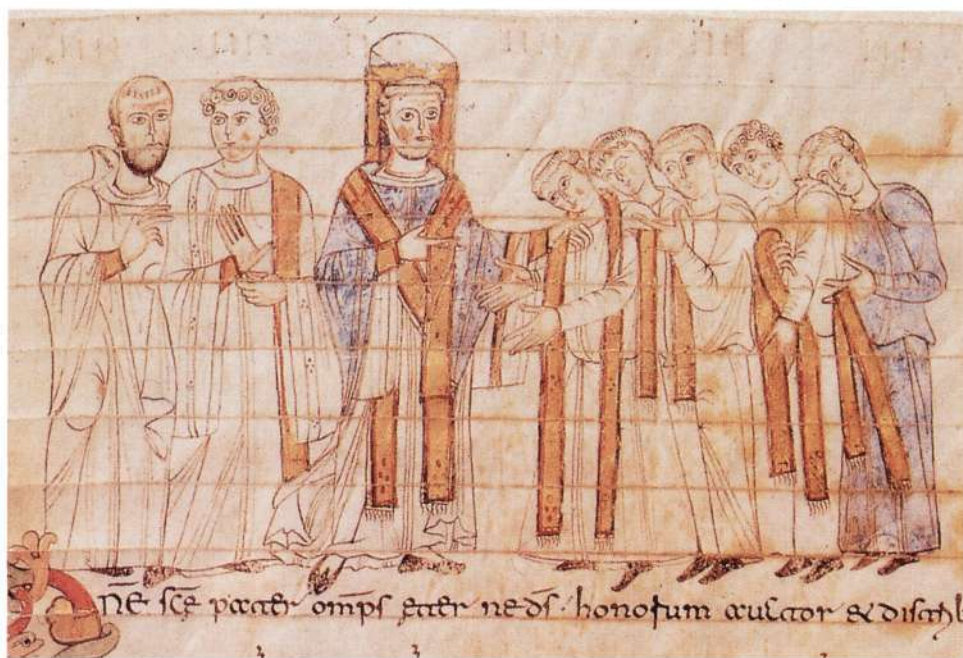 Dn̄e sc̄e pater om̄ps eter ne d̄s · honorum auctor & distrib